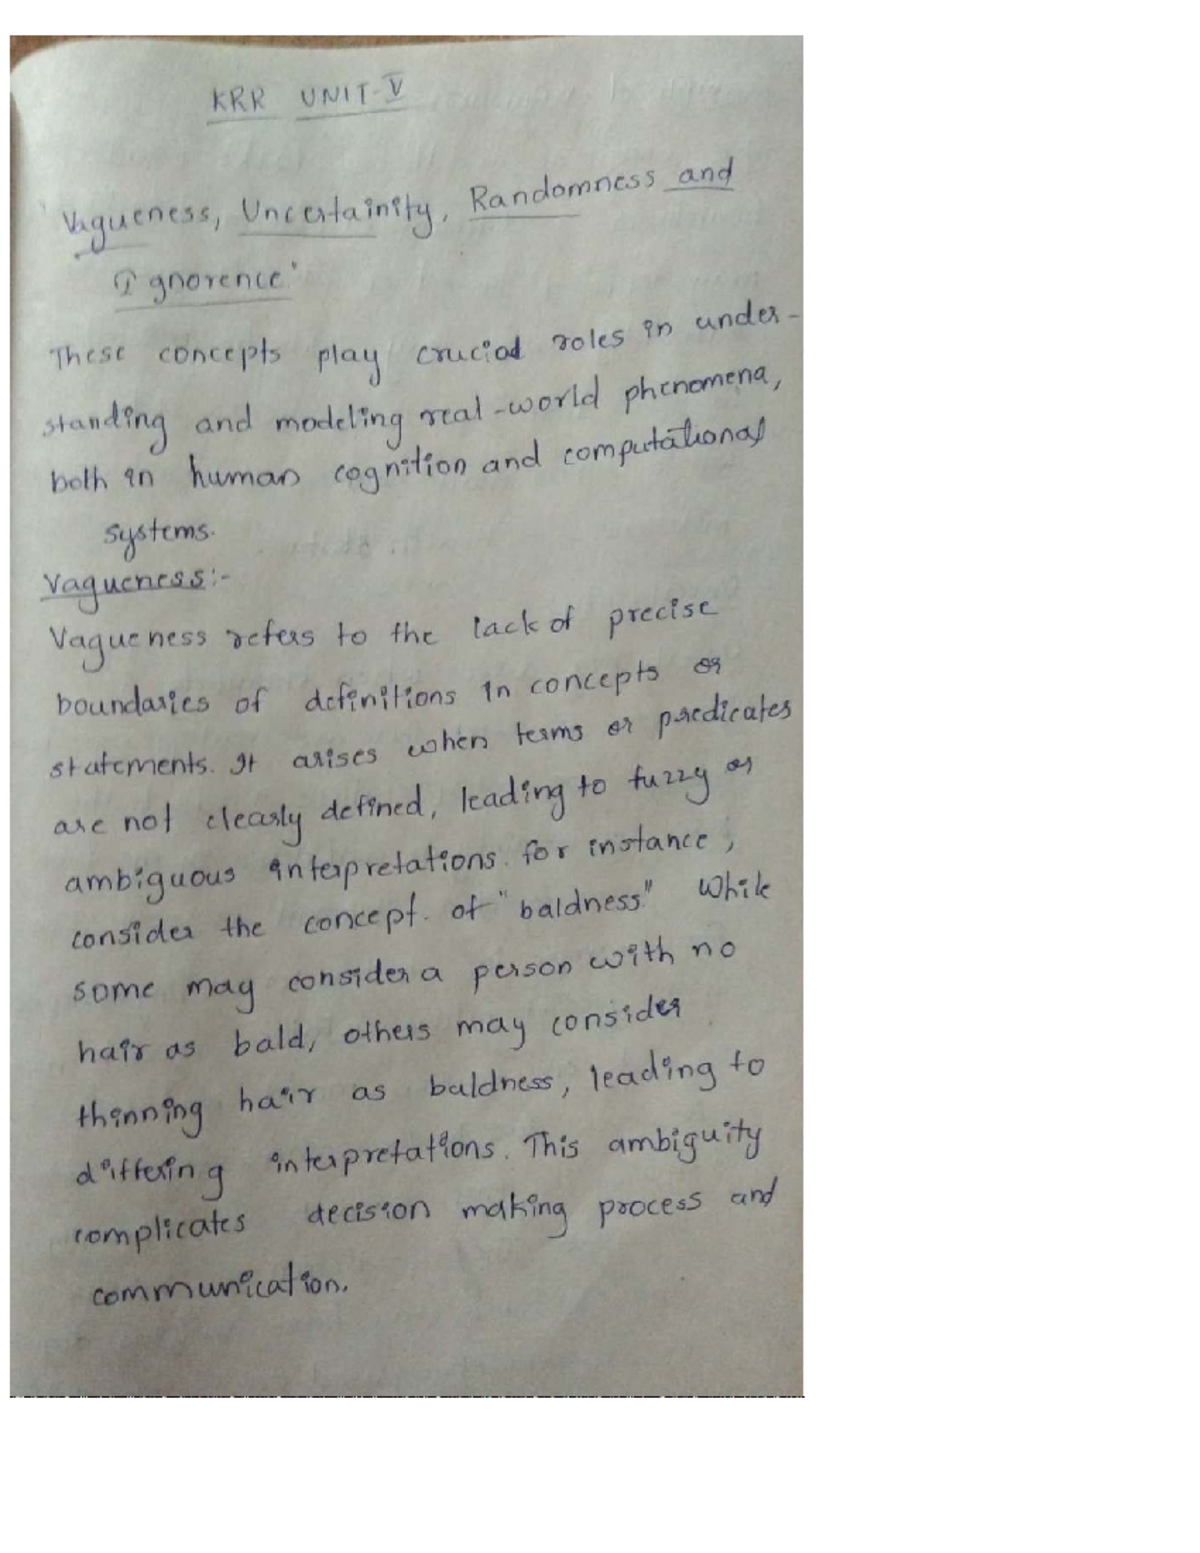 KRR UNIT-V
Vagueness, Uncertainity, Randomness and
Ignorence:
These concepts play crucial roles in under-
standing and modeling real-world phenomena,
both in human cognition and computational
systems.
Vagueness:-
Vagueness refers to the lack of precise
boundaries of definitions in concepts or
statements. It arises when terms or predicates
are not clearly defined, leading to fuzzy or
ambiguous interpretations. for instance,
consider the concept. of "baldness." While
some may consider a person with no
hair as bald, others may consider
thinning hair as baldness, leading to
differing interpretations. This ambiguity
complicates decision making process and
communication.